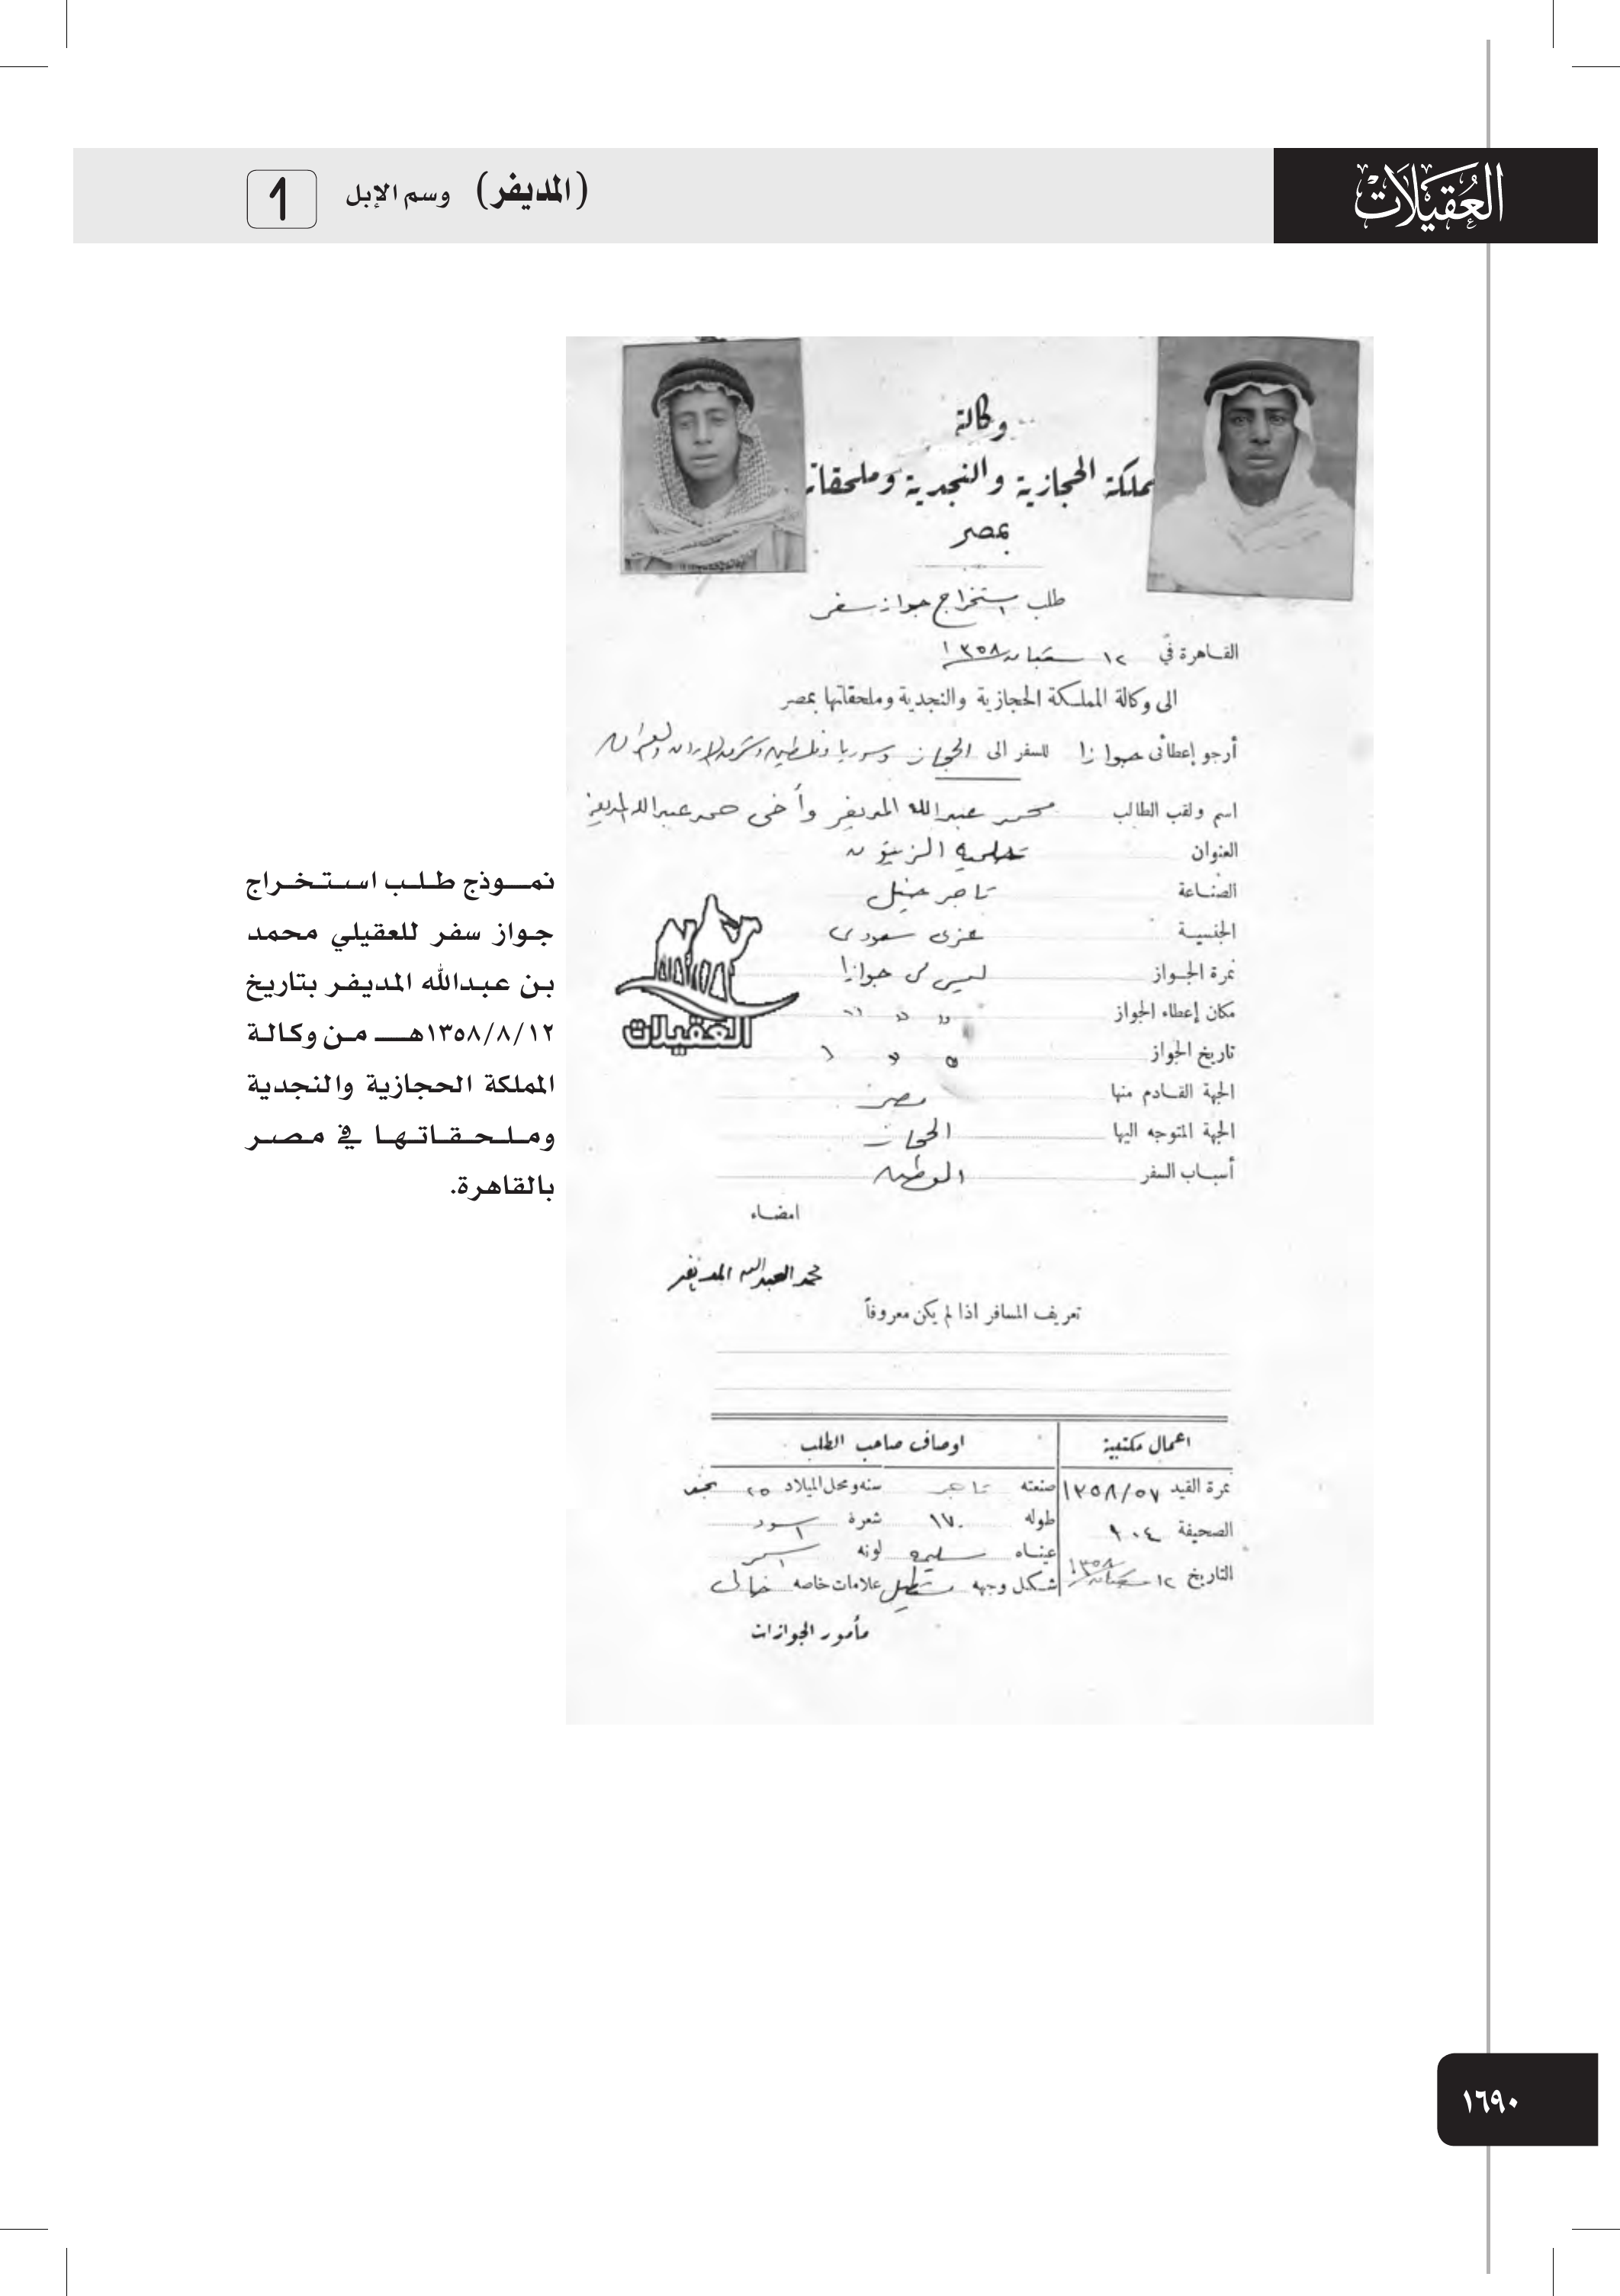 العُقَيْلَاتْ
(المديفر) وسم الإبل
1
وكالة
مملكة الحجازية والنجدية وملحقات
بمصر
طلب استخراج جواز سفر
القاهرة في ١٢ شعبان ١٣٥٨
الى وكالة المملكة الحجازية والنجدية وملحقاتها بمصر
أرجو إعطائى جوازا للسفر الى الحجاز وسوريا وفلسطين وشرق الاردن والعراق
اسم ولقب الطالب محمد عبدالله المديفر وأخى حمد عبدالله المديفر
العنوان حلمية الزيتون
الصناعة تاجر خيل
الجنسية سعودى
نمرة الجواز ليس لى جوازا
مكان إعطاء الجواز " " "
تاريخ الجواز
الجهة القادم منها مصر
الجهة المتوجه اليها الحجاز
أسباب السفر الوطن
امضاء
محمد العبدالله المديفر
تعريف المسافر اذا لم يكن معروفاً
اعمال مكتبية
نمرة القيد ١٣٥٨/٥٧
الصحيفة ١٠٤
التاريخ ١٢ شعبان ١٣٥٨
اوصاف صاحب الطلب
صنعته تاجر سنه ومحل الميلاد ٢٥ نجد
طوله ١٧٠ شعرة اسود
عيناه سليمه لونه اسمر
شكل وجهه مستطيل علامات خاصه خالى
مأمور الجوازات
العقيلات
نموذج طلب استخراج
جواز سفر للعقيلي محمد
بن عبدالله المديفر بتاريخ
١٣٥٨/٨/١٢هـ من وكالة
المملكة الحجازية والنجدية
وملحقاتها في مصر
بالقاهرة.
١٦٩٠